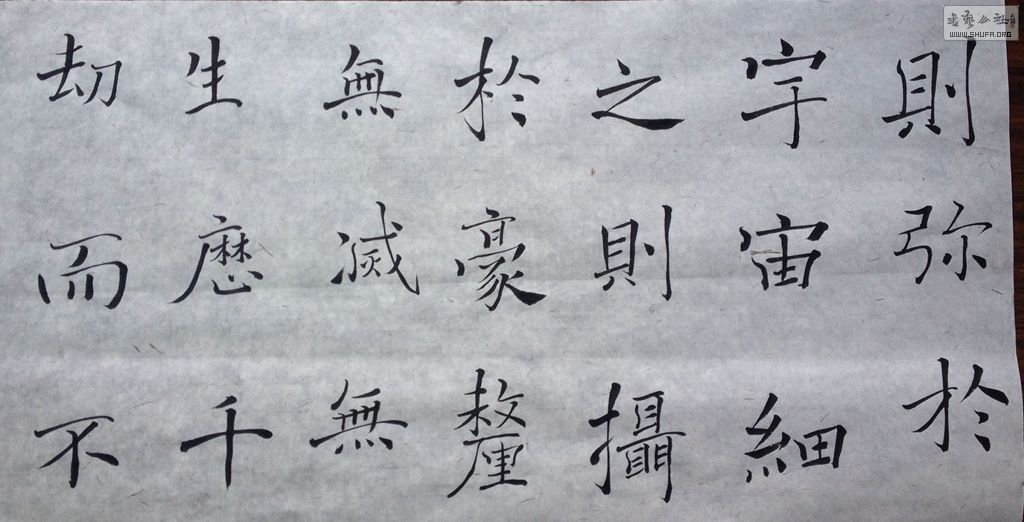 則弥於
宇宙細
之則攝
於豪釐
無滅無
生歷千
劫而不
書藝公社
WWW.SHUFA.ORG